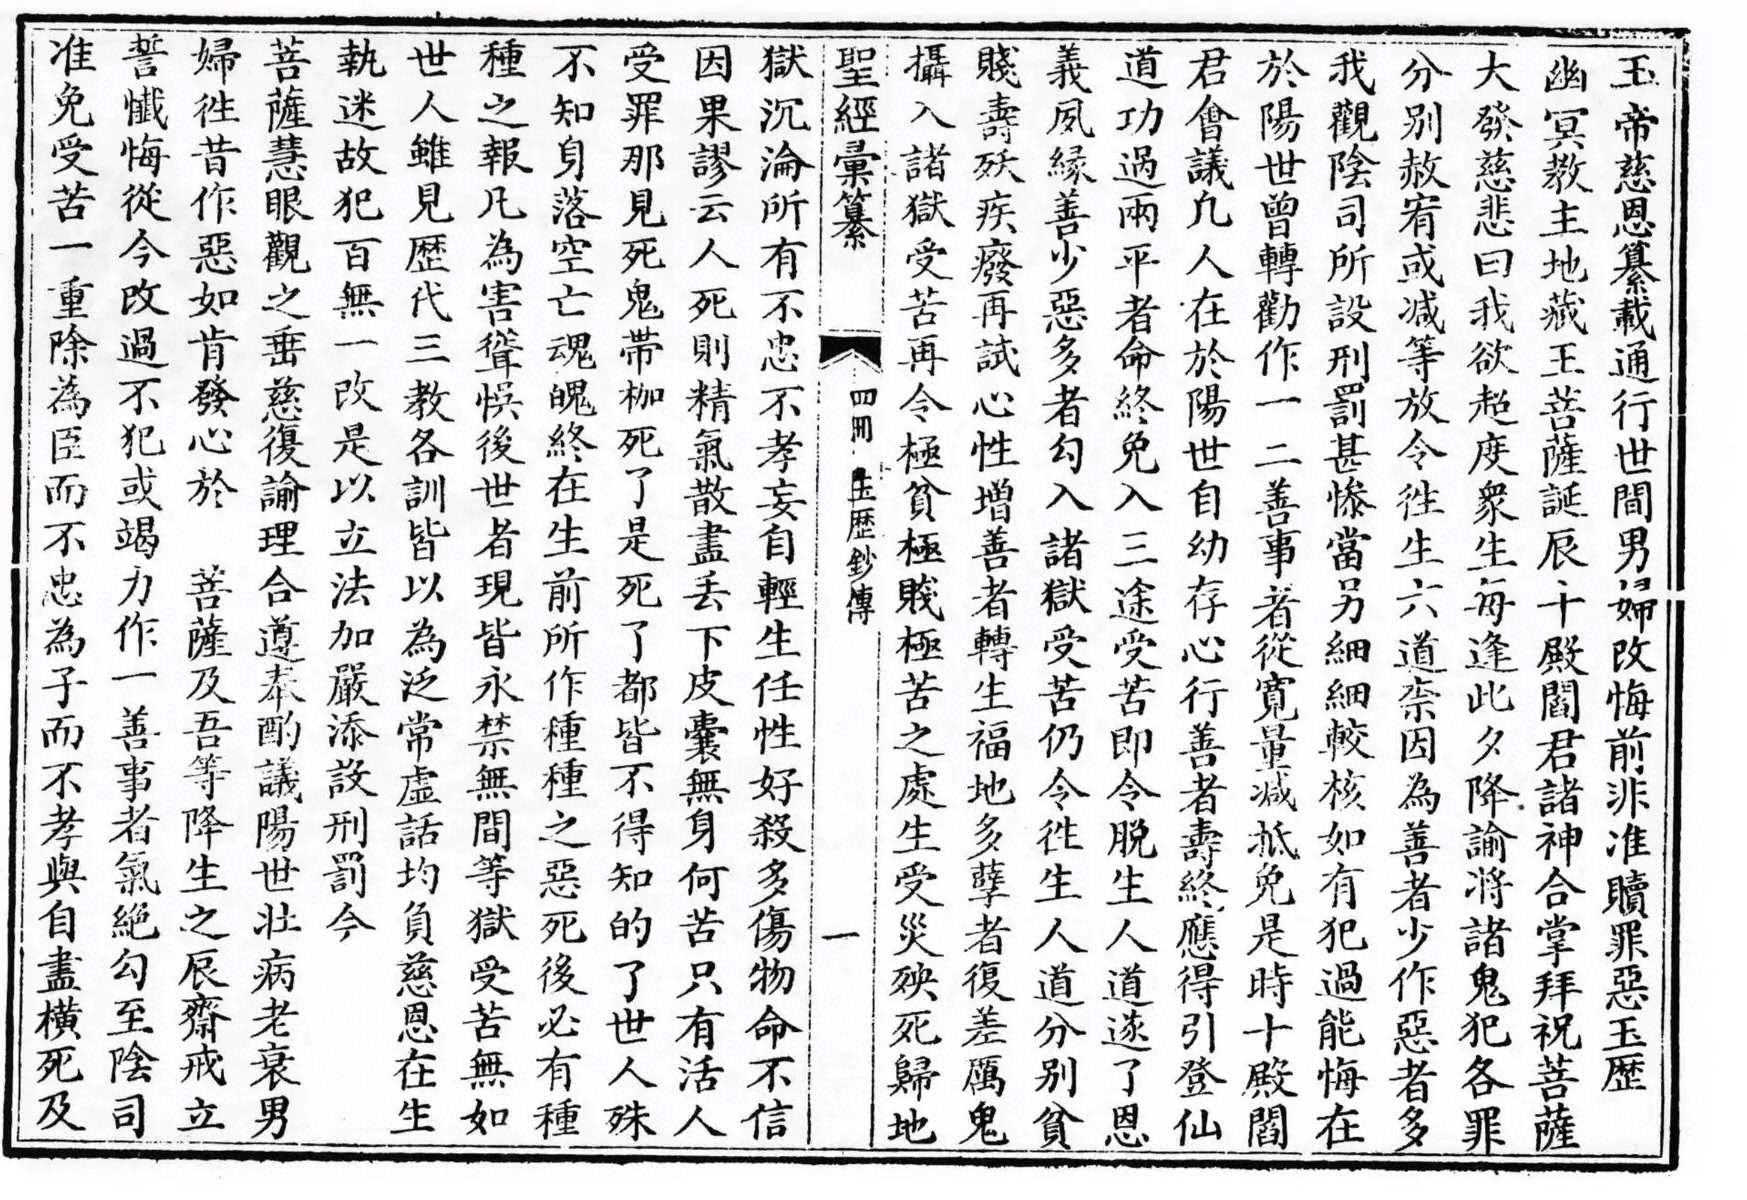 玉帝慈恩纂載通行世間男婦改悔前非准贖罪惡玉歴
幽冥教主地藏王菩薩誕辰十殿閻君諸神合掌拜祝菩薩
大發慈悲曰我欲超度衆生每逢此夕降諭將諸鬼犯各罪
分别赦宥或减等放令徃生六道柰因為善者少作惡者多
我觀陰司所設刑罰甚慘當另細細較核如有犯過能悔在
於陽世曾轉勸作一二善事者從寬量减抵免是時十殿閻
君會議凢人在於陽世自幼存心行善者壽終應得引登仙
道功過兩平者命終免入三途受苦即令脱生人道遂了恩
義夙縁善少惡多者勾入諸獄受苦仍令徃生人道分别貧
賤壽殀疾癈再試心性増善者轉生福地多孽者復差厲鬼
攝入諸獄受苦再令極貧極賤極苦之處生受災殃死歸地
聖經彙纂 四冊 玉歴鈔傳 一
獄沉淪所有不忠不孝妄自輕生任性好殺多傷物命不信
因果謬云人死則精氣散盡丢下皮囊無身何苦只有活人
受罪那見死鬼帶枷死了是死了都皆不得知的了世人殊
不知身落空亡魂魄終在生前所作種種之惡死後必有種
種之報凡為害聳悮後世者現皆永禁無間等獄受苦無如
世人雖見歴代三教各訓皆以為泛常虛話均負慈恩在生
執迷故犯百無一改是以立法加嚴添設刑罰今
菩薩慧眼觀之垂慈復諭理合遵奉酌議陽世壯病老衰男
婦徃昔作惡如肯發心於　菩薩及吾等降生之辰齋戒立
誓懺悔從今改過不犯或竭力作一善事者氣絶勾至陰司
准免受苦一重除為臣而不忠為子而不孝與自盡横死及